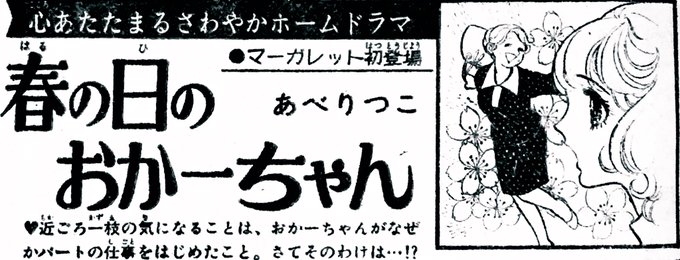 心あたたまるさわやかホームドラマ
●マーガレット初登場
はつとうじょう
はる ひ
春の日の
あべりつこ
おかーちゃん
♥近ごろ一枝の気になることは、おかーちゃんがなぜ
かパートの仕事をはじめたこと。さてそのわけは…!?